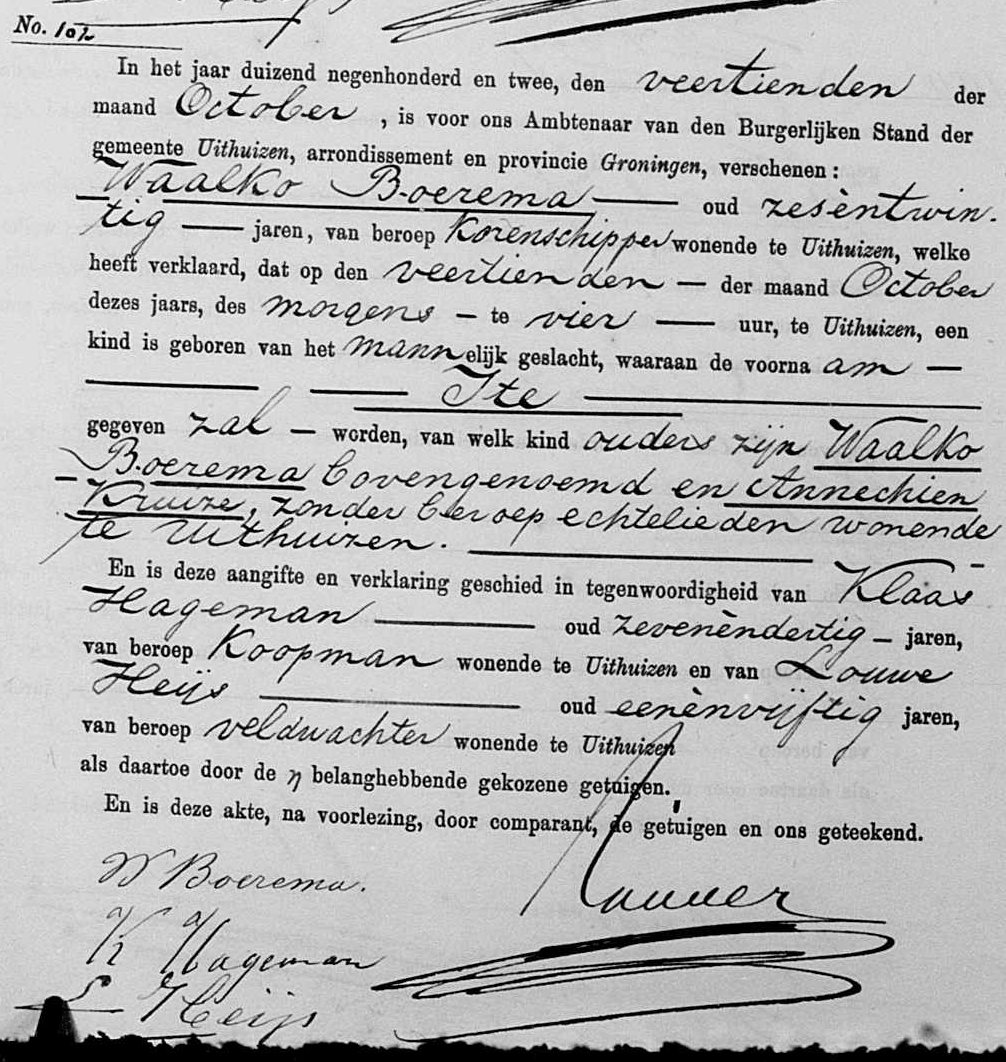 No. 102
In het jaar duizend negenhonderd en twee, den veertienden der
maand October , is voor ons Ambtenaar van den Burgerlijken Stand der
gemeente Uithuizen, arrondissement en provincie Groningen, verschenen :
Waalko Boerema — oud zesèntwin-
tig — jaren, van beroep Korenschipper wonende te Uithuizen, welke
heeft verklaard, dat op den veertienden — der maand October
dezes jaars, des morgens — te vier — uur, te Uithuizen, een
kind is geboren van het mannelijk geslacht, waaraan de voornaam —
— Ite —
gegeven zal — worden, van welk kind ouders zijn Waalko
Boerema bovengenoemd en Annechien
Kruize, zonder beroep echtelieden wonende
te Uithuizen. —
En is deze aangifte en verklaring geschied in tegenwoordigheid van Klaas
Hageman — oud zevenèndertig — jaren,
van beroep Koopman wonende te Uithuizen en van Louwe
Heijs — oud eenènvijftig jaren,
van beroep veldwachter wonende te Uithuizen
als daartoe door de η belanghebbende gekozene getuigen.
En is deze akte, na voorlezing, door comparant, de getuigen en ons geteekend.
W Boerema.
K Hageman
L Heijs